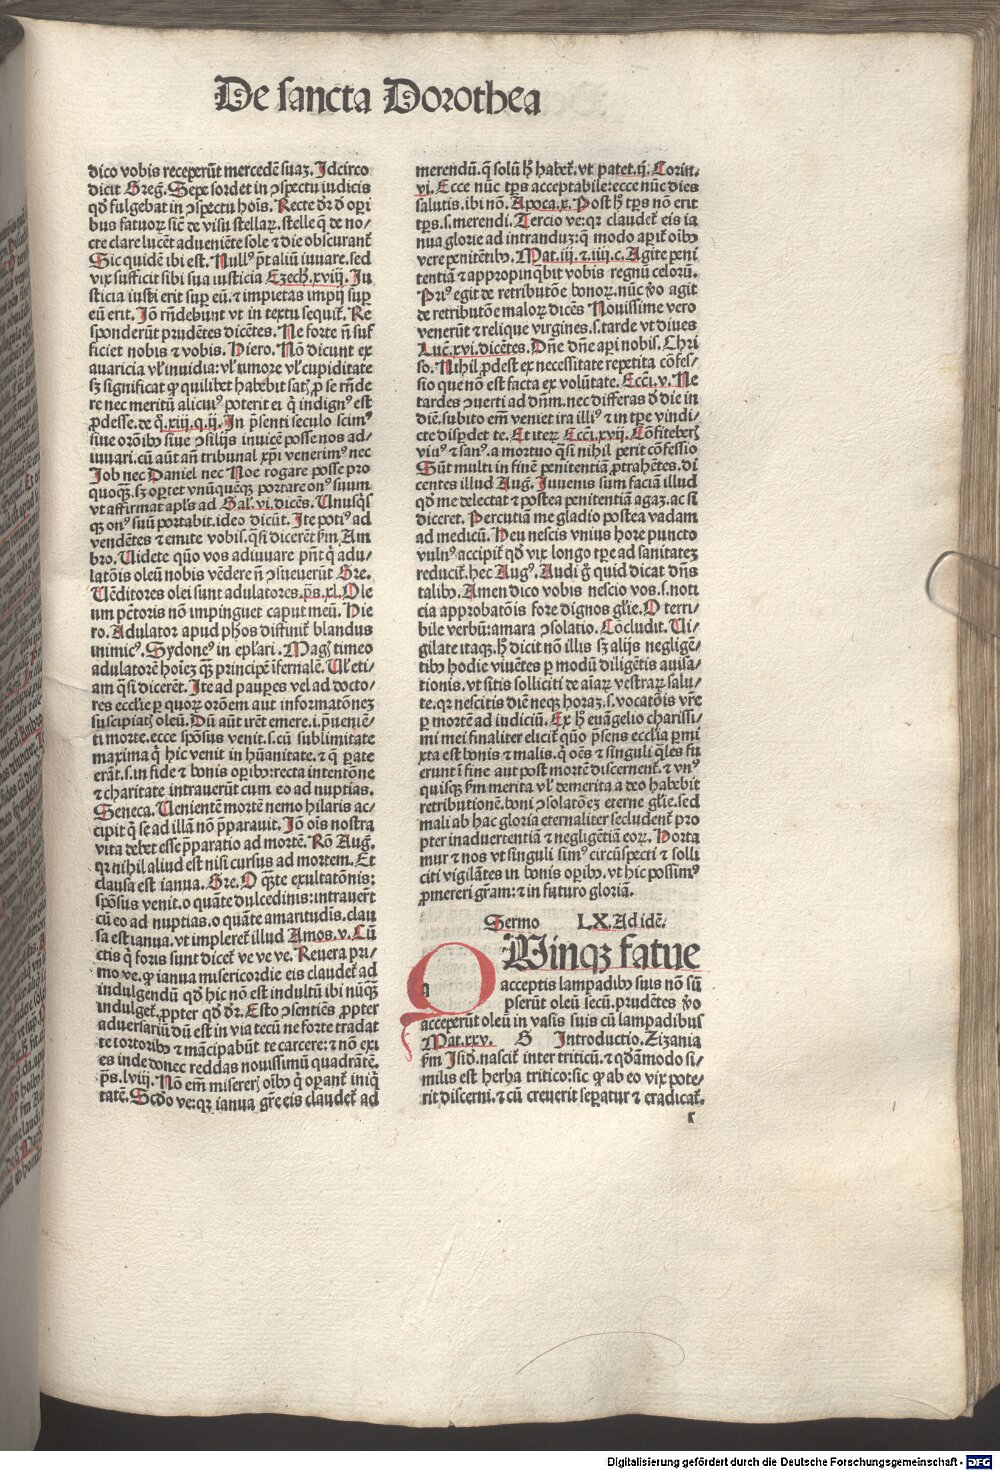 De sancta Dorothea
dico vobis receperūt mercedē suaꝫ. Idcirco
dicit Greg. Sepe sordet in ↄspectu iudicis
qđ fulgebat in ↄspectu hoīs. Recte dr̄ đ operi
bus fatuoꝝ sic̄ de visu stellaꝝ. stelle q̄ de no⸗
cte clare lucēt adueniēte sole ⁊ die obscurant᷑
Sic quidē ibi est. Nullꝰ p̄t aliū iuuare. sed
vix sufficit sibi sua iusticia Ezech. xviij. Iu
sticia iusti erit super eū. ⁊ impietas impij super
eū erit. Iō rn̄debunt vt in textu sequit᷑. Re
sponderūt prudētes dicētes. Ne forte n̄ suf
ficiet nobis ⁊ vobis. Hiero. Nō dicunt ex
auaricia vl̓ inuidia: vl̓ timore vl̓ cupiditate
sꝫ significat ꝙ quilibet habebit satꝭ ꝓ se rn̄de
re nec meritū alicuiꝰ poterit ei q̇ indignꝰ est
ꝓdesse. de q̄. xiij. q. ij. In p̄senti seculo scimꝰ
siue orōibꝰ siue ↄsilijs inuicē posse nos ad⸗
iuuari. cū aūt an̄ tribunal xp̄i venerimꝰ nec
Job nec Daniel nec Noe rogare posse pro
quoqꝫ. sꝫ oportet vnūquēqꝫ portare onꝰ suum
vt affirmat apl̓s ad Gal. vi. dicēs. Unusqꝫs
qꝫ onꝰ suū portabit. ideo dicūt. Ite potiꝰ ad
vendētes ⁊ emite vobis. q̄si dicerēt ẜm Am
bro. Uidete quō vos adiuuare pn̄t q̇ adu⸗
latōis oleū nobis vēdere n̄ ↄsueuerūt Gre.
Uēditores olei sunt adulatores. ps̄. xl. Ole
um pctōris nō impinguet caput meū. Hie
ro. Adulator apud ph̓os distinit᷑ blandus
inimicꝰ. Sydoneꝰ in epl̓ari. Magꝭ timeo
adulatorē hoīeꝫ qꝫ principē īfernalē. Ul̓ eti⸗
am q̄si dicerēt. Ite ad paupes vel ad docto⸗
res eccl̓ie per quoꝝ orōem aut informatōneꝫ
suscipiatꝭ oleū. Dū aūt irēt emere. i. p̄ueniē⸗
ti morte. ecce spōsus venit. s. cū sublimitate
maxima q̇ hic venit in hūanitate. ⁊ q̄ parate
erāt. s. in fide ⁊ bonis operibꝰ: recta intentōne
⁊ charitate intrauerūt cum eo ad nuptias.
Seneca. Uenientē mortē nemo hilaris ac⸗
cipit q̇ se ad illā nō p̄parauit. Iō oīs nostra
vita debet esse p̄paratio ad mortē. Rō Aug.
qꝛ nihil aliud est nisi cursus ad mortem. Et
clausa est ianua. Gre. O q̄te exultatōnis:
spōsus venit. o quāte dulcedinis: intrauert̄
cū eo ad nuptias. o quāte amaritudis. clau
sa est ianua. vt impleret᷑ illud Amos. v. Cū
ctis q̇ foris sunt dicet᷑ ve ve ve. Reuera pri⸗
mo ve. ꝙ ianua misericordie eis claudet᷑ ad
indulgendū qđ hic non est indultū ibi nūqꝫ
indulget᷑. ꝓpter qđ dr̄. Esto ↄsentiēs ꝓpter
aduersariū dū est in via tecū ne forte tradat
te tortoribꝰ ⁊ mācipabūt te carcere: ⁊ nō exi
es inde donec reddas nouissimū quadrātē.
ps̄. lviij. Nō em̄ misererꝭ oībꝰ q̇ operant᷑ iniq̇
tatē. Scđo ve: qꝛ ianua gr̄e eis claudet᷑ ad
merendū. q̄ solū hꝭ habet᷑. vt patet. ij. Corin⸗
vi. Ecce nūc tp̄s acceptabile: ecce nūc dies
salutis. ibi nō. Apoca. x. Post hꝭ tp̄s nō erit
tp̄s. s. merendi. Tercio ve: qꝛ claudet᷑ eis ia
nua glorie ad intranduꝫ: q̄ modo aperit᷑ oībꝰ
vere penitētibꝰ. Mat. iij. ⁊. iiij. c. Agite peni
tentiā ⁊ appropinq̄bit vobis regnū celoꝝ.
Priꝰ egit de retributōe bonoꝝ. nūc ꝟo agit
de retributōe maloꝝ dicēs Nouissime vero
venerūt ⁊ relique virgines. s. tarde vt diues
Luc̄. xvi. dicētes. Dn̄e dn̄e aperi nobis. Chri
so. Nihil ꝓdest ex necessitate repetita cōfes⸗
sio que nō est facta ex volūtate. Ecci̓. v. Ne
tardes ↄuerti ad dn̄m. nec differas đ die in
diē. subito em̄ veniet ira illiꝰ ⁊ in tp̄e vindi⸗
cte disp̄det te. Et iteꝝ Ecci̓. xvij. Cōfiteberꝭ
viuꝰ ⁊ sanꝰ. a mortuo q̄si nihil perit cōfessio
Sūt multi in finē penitentiā ꝓtrahētes. di
centes illud Aug. Juuenis sum faciā illud
qđ me delectat ⁊ postea penitentiā agaꝫ. ac si
diceret. Percutiā me gladio postea vadam
ad medicū. Heu nescis vnius hore puncto
vulnꝰ accipit᷑ qđ vix longo tp̄e ad sanitateꝫ
reducit᷑. hec Augꝰ. Audi ḡ quid dicat dn̄s
talibꝰ. Amen dico vobis nescio vos. s. noti
cia approbatōis fore dignos gl̓ie. O terri⸗
bile verbū: amara ↄsolatio. Cōcludit. Ui⸗
gilate itaqꝫ. hꝭ dicit nō illis sꝫ alijs negligē⸗
tibꝰ hodie viuētes per modū diligētis auisa⸗
tionis. vt sitis solliciti de aīaꝝ vestraꝝ salu⸗
te. qꝛ nescitis diē neqꝫ horaꝫ. s. vocatōis vr̄e
per mortē ad iudiciū. Ex hꝭ euāgelio charissi⸗
mi mei finaliter elicit᷑ quō p̄sens eccl̓ia permi
xta est bonis ⁊ malis. q̇ oēs ⁊ singuli q̄les fu
erunt ī fine aut post mortē discernent᷑. ⁊ vnꝰ
quisqꝫ ẜm merita vl̓ demerita a deo habebit
retributionē. boni ↄsolatōeꝫ eterne gl̓ie. sed
mali ab hac gloria eternaliter secludent᷑ pro
pter inaduertentiā ⁊ negligētiā eoꝝ. Horta
mur ⁊ nos vt singuli simꝰ circūspecti ⁊ solli
citi vigilātes in bonis operibꝰ. vt hic possimꝰ
ꝓmereri gr̄am: ⁊ in futuro gloriā.
Sermo LX. Ad idē.
QUinqꝫ fatue
acceptis lampadibꝰ suis nō sū
pserūt oleū secū. prudētes ꝟo
acceperūt oleū in vasis suis cū lampadibus
Mat. xxv. S Introductio. Zizania
ẜm Isid. nascit᷑ inter triticū. ⁊ qđāmodo si⸗
milis est herba tritico: sic ꝙ ab eo vix pote⸗
rit discerni. ⁊ cū creuerit seperatur ⁊ eradicat᷑.
r
Digitalisierung gefördert durch die Deutsche Forschungsgemeinschaft - DFG